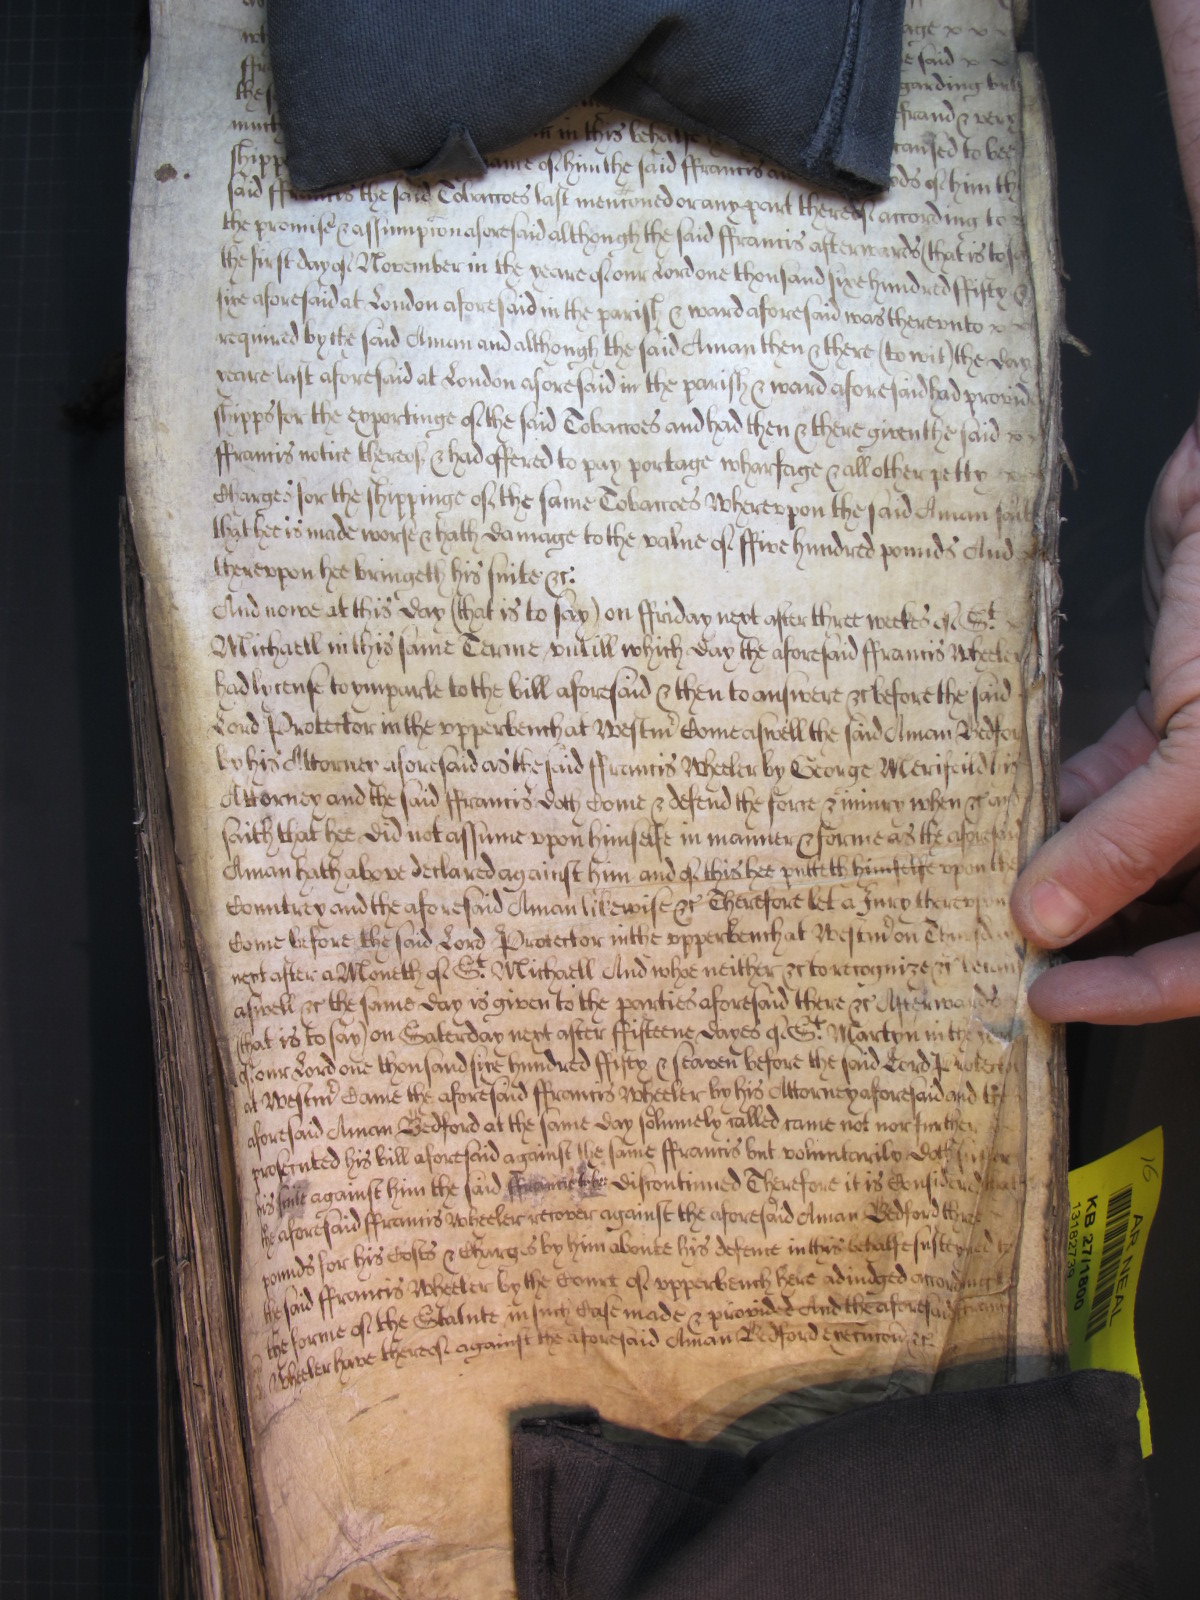 age
ffra e said
the s garding
much in this behalfe ffraud & very
shipp name of him the said ffrancis caused to bee
said ffrancis the said Tobaccoes last mentioned or any part thereof according to
the promise & assumpcion aforesaid although the said ffrancis afterwards (that is to say
the first day of November in the yeare of our Lord one thousand sixe hundred ffifty &
sixe aforesaid at London aforesaid in the parish & ward aforesaid was therevnto
required by the said Aman and although the said Aman then & there (to wit) the day
yeare last aforesaid at London aforesaid in the parish & ward aforesaid had provide
shipps for the exportinge of the said Tobaccoes and had then & there given the said
ffrancis notice thereof & had offered to pay portage wharfage & all other petty
Charges for the shippinge of the same Tobaccoes Wherevpon the said Aman saith
that hee is made worse & hath damage to the value of ffive hundred pounds And
therevpon hee bringeth his suite &c:
And nowe at this day (that is to say) on ffriday next after three weekes of St.
Michaell in this same Terme vntill which day the aforesaid ffrancis Wheeler
had lycense to ymparle to the bill aforesaid & then to answere &c before the said
Lord Protector in the vpperbench at Westmr Come aswell the said Aman Bedfor
by his Attorney aforesaid as the said ffrancis Wheeler by George Merifeild his
Attorney and the said ffrancis doth Come & defend the force & iniury when &c and
saith that hee did not assume vpon himselfe in manner & forme as the aforesaid
Aman hath above declared against him and of this hee putteth himselfe vpon the
Countrey and the aforesaid Aman likewise &c Therefore let a Jury therevpon
Come before the said Lord Protector in the vpperbench at Westmr on
next after a Moneth of St. Michaell And whoe neither &c to recognize &c because
aswell &c the same day is given to the parties aforesaid there &c Afterwards
(that is to say) on Saterday next after ffifteene dayes of St. Martyn in the
of our Lord one thousand sixe hundred ffifty & seaven before the said Lord Protector
at Westmr Came the aforesaid ffrancis Wheeler by his Attorney aforesaid and the
aforesaid Aman Bedford at the same day solumely called came not nor further
prosecuted his bill aforesaid against the same ffrancis but voluntarily doth suffer
his suite against him the said ffrancis to be discontinued Therefore it is Considered that
the aforesaid ffrancis Wheeler recover against the aforesaid Aman Bedford three
pounds for his Costs & Charges by him aboute his defence in this behalfe susteyned to
the said ffrancis Wheeler by the Court of vpperbench here adiudged according to
the forme of the Statute in such Case made & provided And the aforesaid ffrancis
Wheeler have thereof against the aforesaid Aman Bedford execucion &c
16
AR NEAL
KB 27/1800
13182739